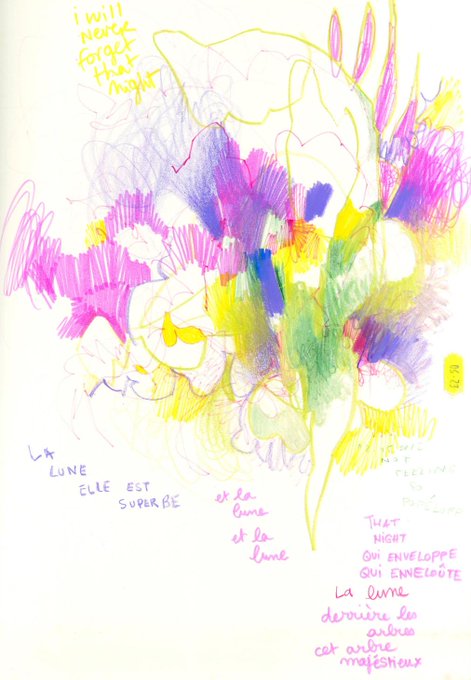 i will
never
forget
that
night
£2.50
LA
LUNE
ELLE EST
SUPERBE
et la
lune
et la
lune
NOT
TELLING
THAT
NIGHT
QUI ENVELOPPE
QUI ENVELOÛTE
La lune
derrière les
arbres
cet arbre
majéstieux